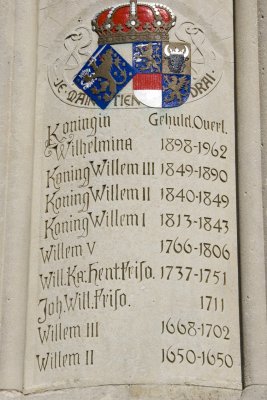 JE MAINTIENDRAI
Koningin Gehuld. Overl.
Wilhelmina 1898-1962
Koning Willem III 1849-1890
Koning Willem II 1840-1849
Koning Willem I 1813-1843
Willem V 1766-1806
Will. Ka: Hent Friso. 1737-1751
Joh. Will. Friso. 1711
Willem III 1668-1702
Willem II 1650-1650